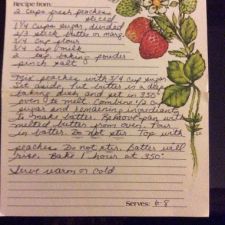 Recipe from:
2 cups fresh peaches
sliced
1 1/4 cups sugar, divided
1/2 stick butter or marg.
3/4 cup flour
3/4 cup milk
2 tsp. baking powder
pinch salt
Mix peaches with 3/4 cup sugar
Set aside, Put butter in a deep
baking dish and set in 350°
oven to melt. Combine 1/2 c
sugar and remaining ingredients
to make batter. Remove pan with
melted butter from oven. Pour
in batter. Do not stir. Top with
peaches Do not stir. Batter will
rise. Bake 1 hour at 350°
Serve warm or cold
Serves: 6-8